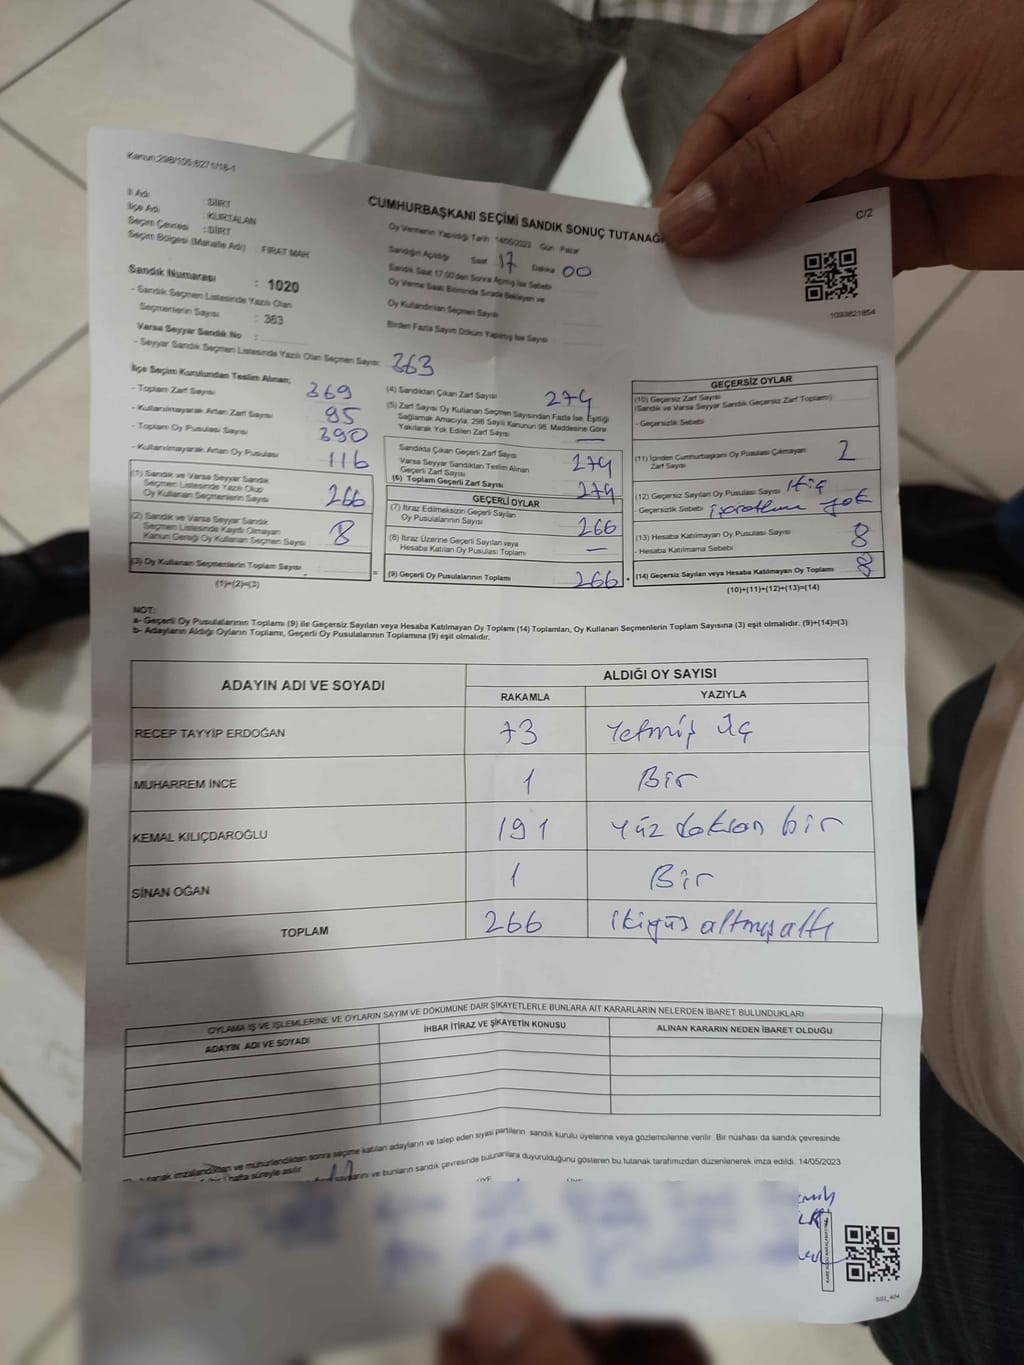 Kanun;298/105;6271/18-1
CUMHURBAŞKANI SEÇİMİ SANDIK SONUÇ TUTANAĞI
C/2
İl Adı : SİİRT
İlçe Adı : KURTALAN
Seçim Çevresi : SİİRT
Seçim Bölgesi (Mahalle Adı) : FIRAT MAH
Sandık Numarası : 1020
- Sandık Seçmen Listesinde Yazılı Olan
Seçmenlerin Sayısı : 363
Varsa Seyyar Sandık No :
- Seyyar Sandık Seçmen Listesinde Yazılı Olan Seçmen Sayısı: 363
Oy Vermenin Yapıldığı Tarih : 14/05/2023 Gün : Pazar
Sandığın Açıldığı Saat 17 Dakika 00
Sandık Saat 17:00'den Sonra Açılmış İse Sebebi
Oy Verme Saati Bitiminde Sırada Bekleyen ve
Oy Kullandırılan Seçmen Sayısı
Birden Fazla Sayım Döküm Yapılmış İse Sayısı
1093821854
İlçe Seçim Kurulundan Teslim Alınan;
- Toplam Zarf Sayısı 369
- Kullanılmayarak Artan Zarf Sayısı 95
- Toplam Oy Pusulası Sayısı 390
- Kullanılmayarak Artan Oy Pusulası 116
(1) Sandık ve Varsa Seyyar Sandık
Seçmen Listesinde Yazılı Olup
Oy Kullanan Seçmenlerin Sayısı 266
(2) Sandık ve Varsa Seyyar Sandık
Seçmen Listesinde Kayıtlı Olmayan
Kanun Gereği Oy Kullanan Seçmen Sayısı 8
(3) Oy Kullanan Seçmenlerin Toplam Sayısı
(1)+(2)=(3)
(4) Sandıktan Çıkan Zarf Sayısı 274
(5) Zarf Sayısı Oy Kullanan Seçmen Sayısından Fazla İse, Eşitliği
Sağlamak Amacıyla, 298 Sayılı Kanunun 98. Maddesine Göre
Yakılarak Yok Edilen Zarf Sayısı —
Sandıkta Çıkan Geçerli Zarf Sayısı 274
Varsa Seyyar Sandıktan Teslim Alınan
Geçerli Zarf Sayısı
(6) Toplam Geçerli Zarf Sayısı 274
GEÇERLİ OYLAR
(7) İtiraz Edilmeksizin Geçerli Sayılan
Oy Pusulalarının Sayısı 266
(8) İtiraz Üzerine Geçerli Sayılan veya
Hesaba Katılan Oy Pusulası Toplamı —
= (9) Geçerli Oy Pusulalarının Toplamı 266
GEÇERSİZ OYLAR
(10) Geçersiz Zarf Sayısı
(Sandık ve Varsa Seyyar Sandık Geçersiz Zarf Toplamı)
- Geçersizlik Sebebi :
(11) İçinden Cumhurbaşkanı Oy Pusulası Çıkmayan
Zarf Sayısı 2
(12) Geçersiz Sayılan Oy Pusulası Sayısı
- Geçersizlik Sebebi yok
(13) Hesaba Katılmayan Oy Pusulası Sayısı 8
- Hesaba Katılmama Sebebi
(14) Geçersiz Sayılan veya Hesaba Katılmayan Oy Toplamı 8
(10)+(11)+(12)+(13)=(14)
NOT:
a- Geçerli Oy Pusulalarının Toplamı (9) ile Geçersiz Sayılan veya Hesaba Katılmayan Oy Toplamı (14) Toplamları, Oy Kullanan Seçmenlerin Toplam Sayısına (3) eşit olmalıdır. (9)+(14)=(3)
b- Adayların Aldığı Oyların Toplamı, Geçerli Oy Pusulalarının Toplamına (9) eşit olmalıdır.
ADAYIN ADI VE SOYADI ALDIĞI OY SAYISI
RAKAMLA YAZIYLA
RECEP TAYYİP ERDOĞAN 73 Yetmiş üç
MUHARREM İNCE 1 Bir
KEMAL KILIÇDAROĞLU 191 Yüz doksan bir
SİNAN OĞAN 1 Bir
TOPLAM 266 İkiyüz altmış altı
OYLAMA İŞ VE İŞLEMLERİNE VE OYLARIN SAYIM VE DÖKÜMÜNE DAİR ŞİKAYETLERLE BUNLARA AİT KARARLARIN NELERDEN İBARET BULUNDUKLARI
ADAYIN ADI VE SOYADI İHBAR İTİRAZ VE ŞİKAYETİN KONUSU ALINAN KARARIN NEDEN İBARET OLDUĞU
tutanak imzalandıktan ve mühürlendikten sonra seçime katılan adayların ve talep eden siyasi partilerin sandık kurulu üyelerine veya gözlemcilerine verilir. Bir nüshası da sandık çevresinde
hafta süreyle asılır.
ve bunların sandık çevresinde bulunanlara duyurulduğunu gösteren bu tutanak tarafımızdan düzenlenerek imza edildi. 14/05/2023